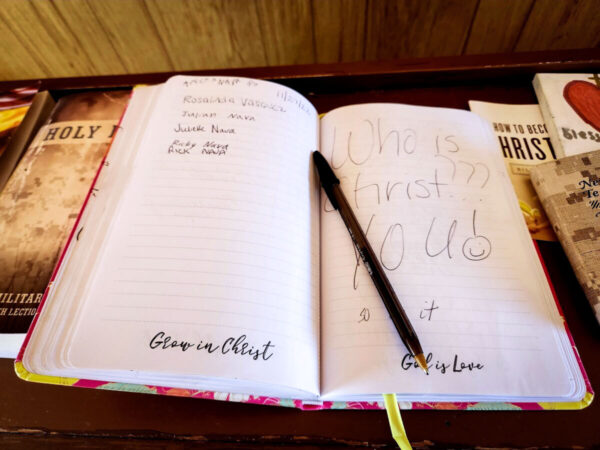 HOLY
MILITAR
Rosalinda Vasquez
Julian Nava
Juliette Nava
Ricky Nava
RICK NAVA
Grow in Christ
Who is
Christ???
YOU!
so it
God is Love
HOW TO BEC
HRIST
Bless